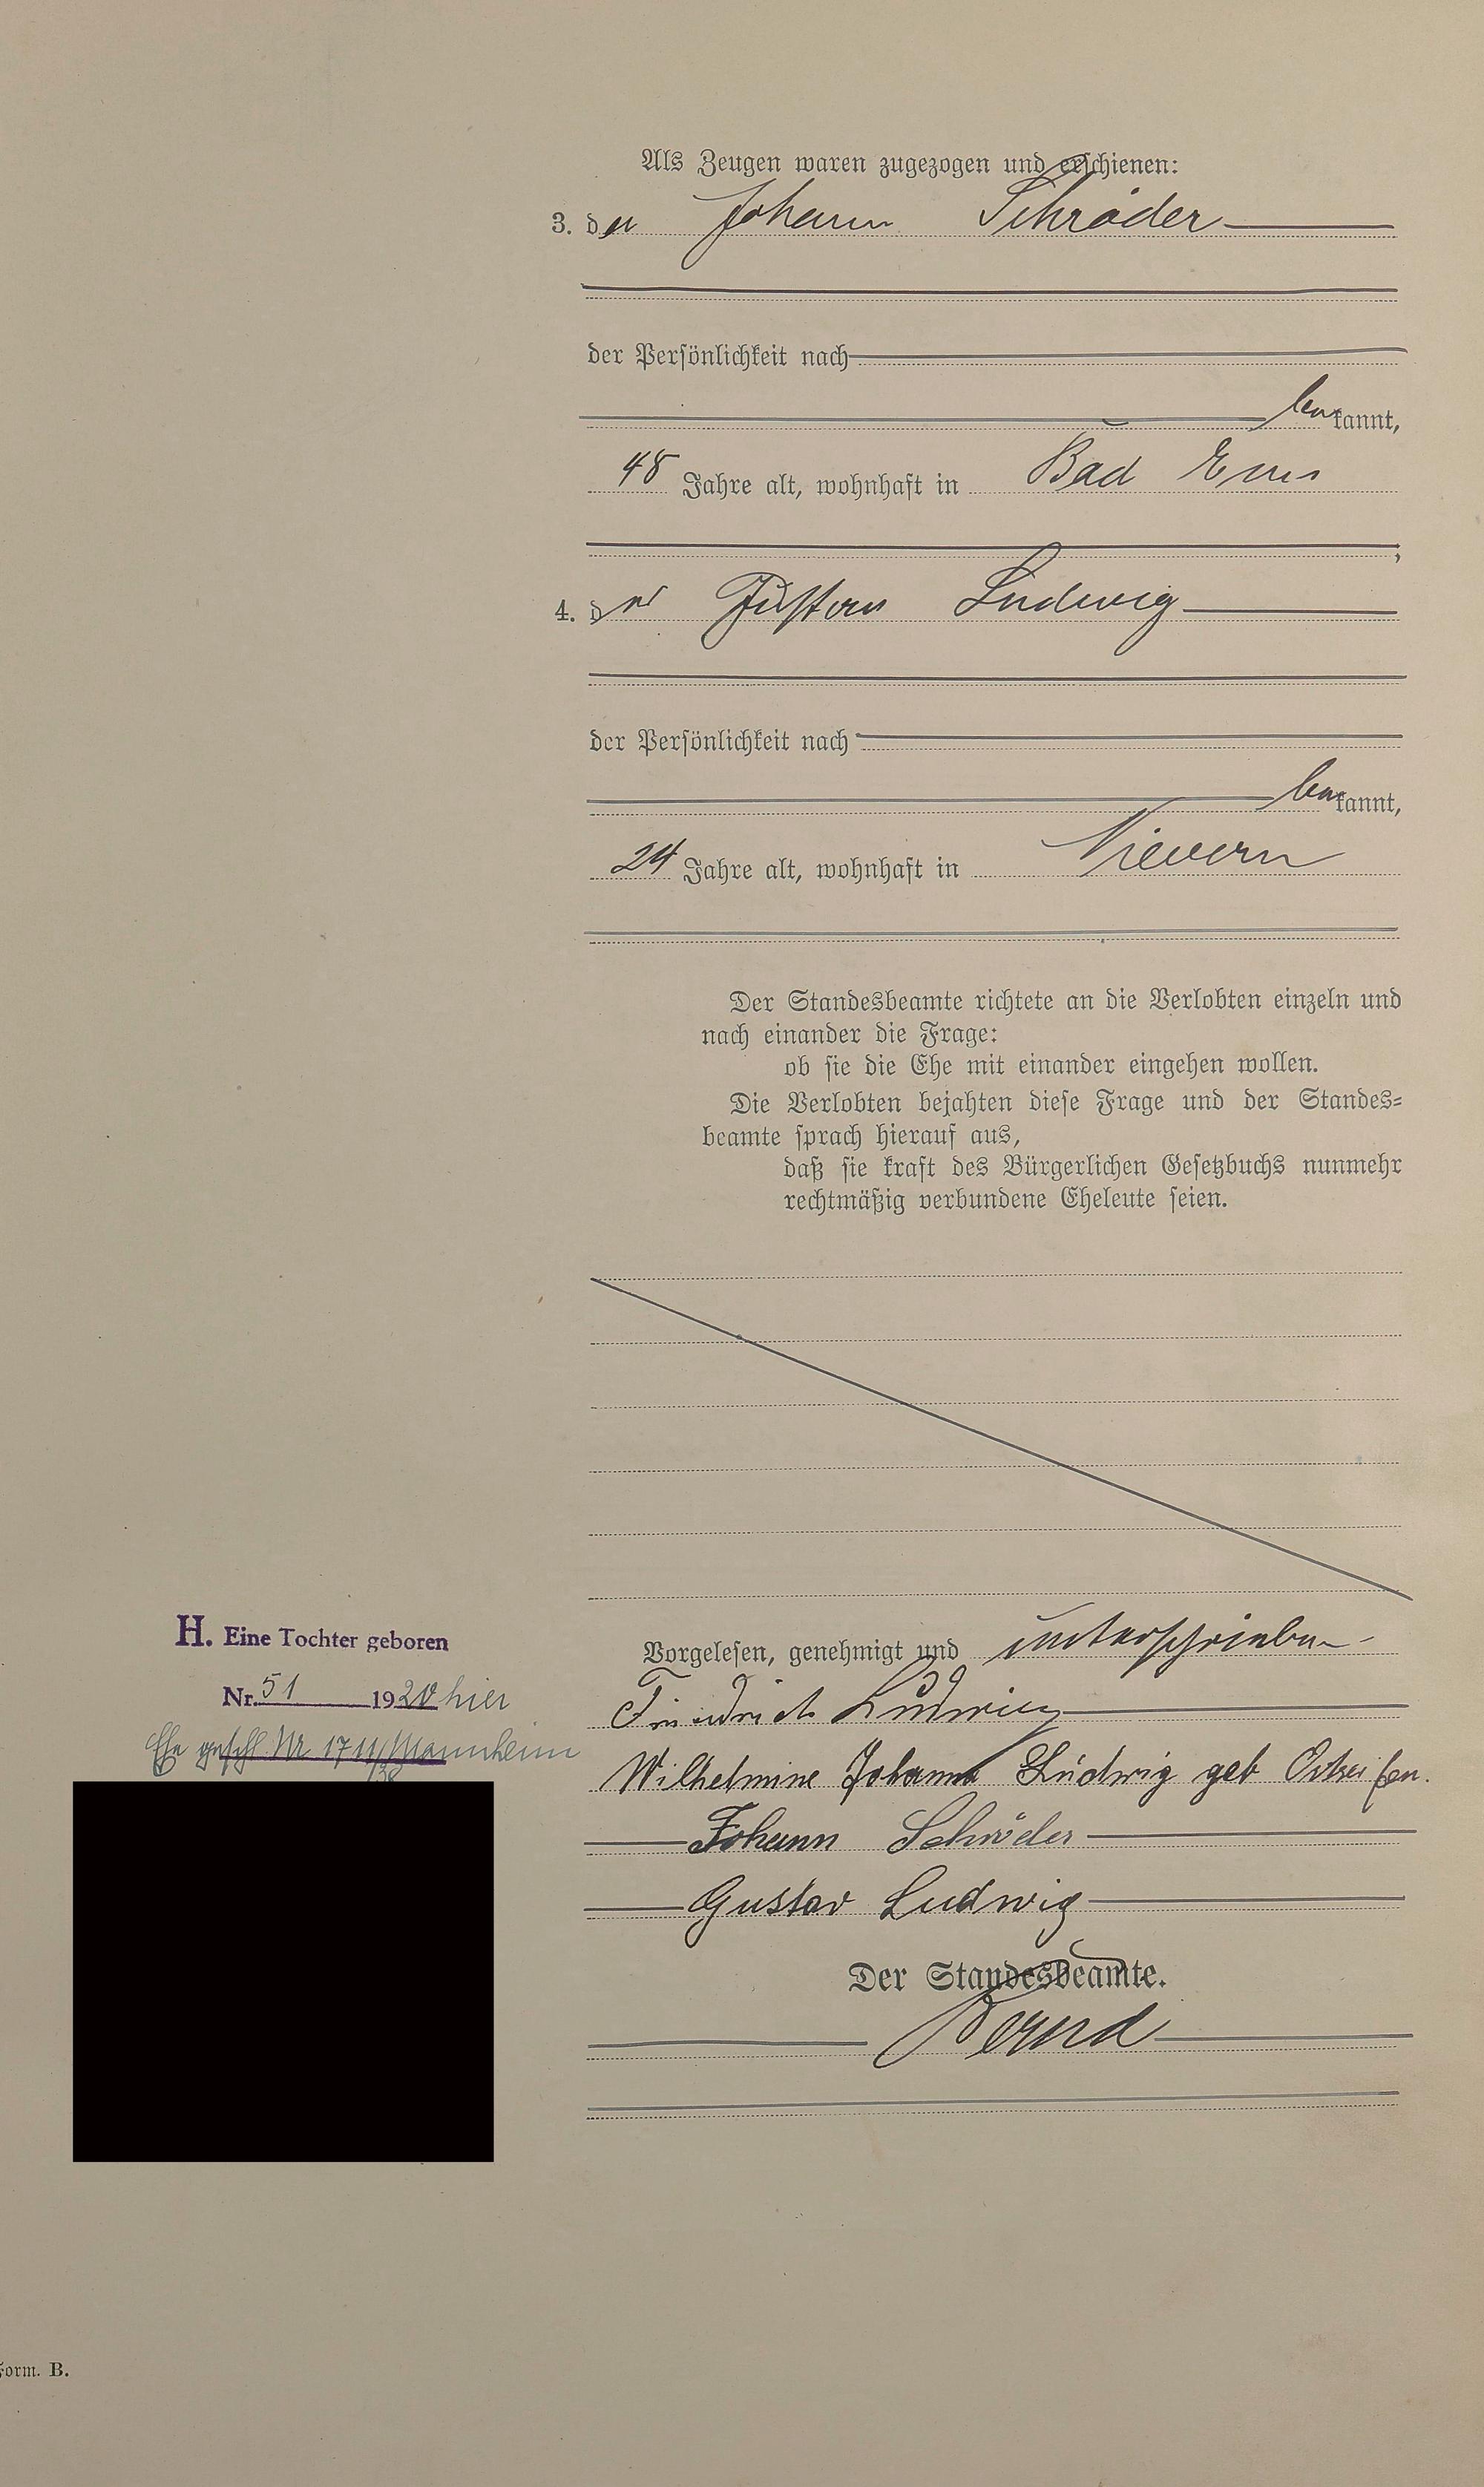 Als Zeugen waren zugezogen und erschienen:
3. der Johann Schröder
der Persönlichkeit nach
bekannt,
48 Jahre alt, wohnhaft in Bad Ems
;
4. der Gustav Ludwig
der Persönlichkeit nach
bekannt,
24 Jahre alt, wohnhaft in Nievern
Der Standesbeamte richtete an die Verlobten einzeln und
nach einander die Frage:
ob sie die Ehe mit einander eingehen wollen.
Die Verlobten bejahten diese Frage und der Standes=
beamte sprach hierauf aus,
daß sie kraft des Bürgerlichen Gesetzbuchs nunmehr
rechtmäßig verbundene Eheleute seien.
Vorgelesen, genehmigt und unterschrieben
Friedrich Ludwig
Wilhelmine Johanna Ludwig geb
Johann Schröder
Gustav Ludwig
Der Standesbeamte.
Bernd
H. Eine Tochter geboren
Nr. 51 1920 hier
Ehe geschl Nr 1711/38 Mannheim
Form. B.